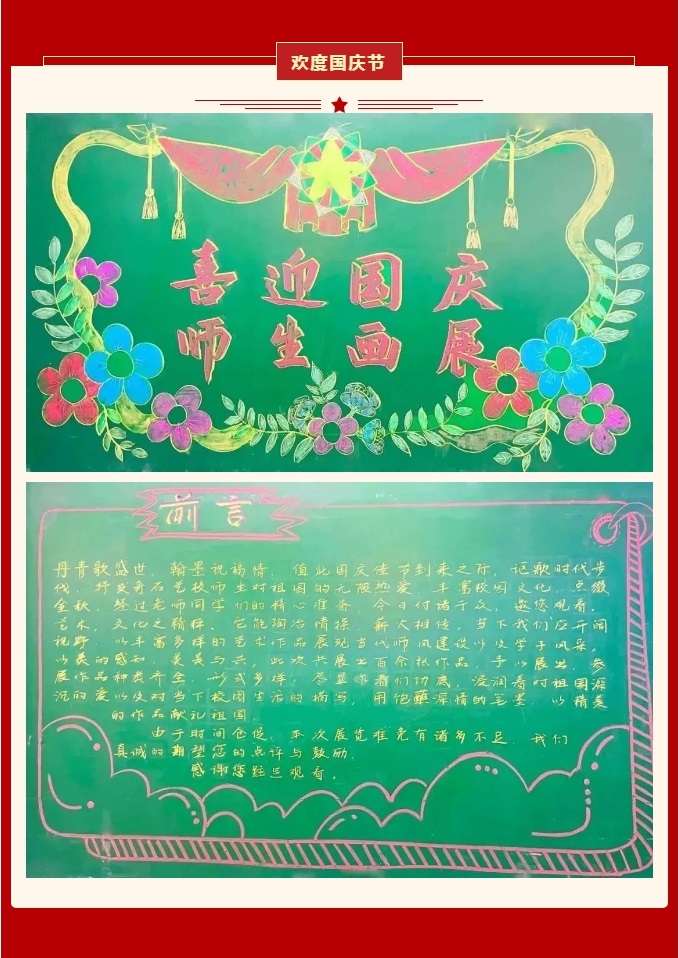 欢度国庆节
喜迎国庆
师生画展
前言
丹青歌盛世，翰墨祝福情，值此国庆佳节到来之际，讴歌时代步
伐，抒发奇石艺校师生对祖国的无限热爱，丰富校园文化，点缀
金秋，经过老师同学们的精心准备，今日付诸于众，邀您观看。
艺术，文化之精粹，它能陶冶情操，薪火相传，当下我们应开阔
视野，以丰富多样的艺术作品展现当代师风建设以及学子风采，
以美的感知，美美与共，此次共展出百余张作品，予以展出，参
展作品种类齐全，形式多样，尽显作者们功底，浸润着对祖国深
沉的爱以及对当下校园生活的描写，用饱蘸深情的笔墨，以精美
的作品献礼祖国。
由于时间仓促，本次展览难免有诸多不足，我们
真诚的期望您的点评与鼓励。
感谢您驻足观看。